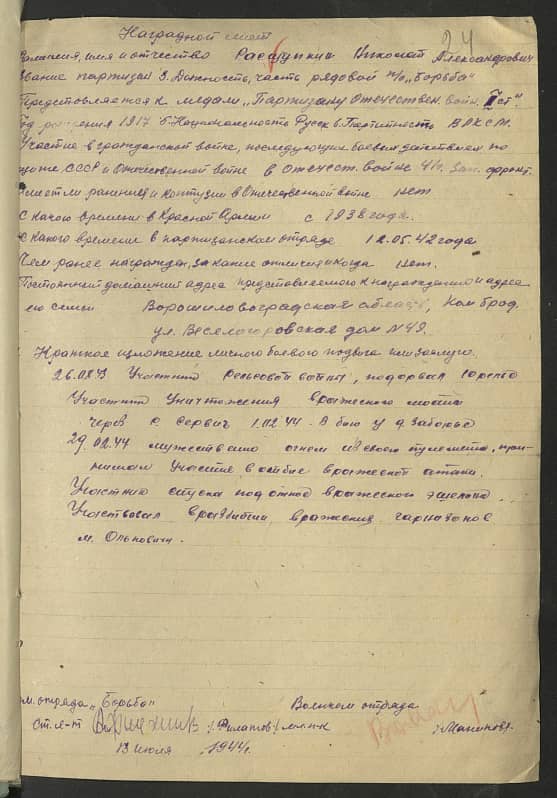 24
Наградной лист
Фамилия, имя и отчество Николай Александрович
Звание партизан 3. Должность, часть рядовой п/о "Борьба"
Представляется к медали "Партизану Отечествен. войн. II ст".
Год рождения 1917 6. Национальность Русск в. Партийность ВЛКСМ.
Участие в гражданской войне, последующих боевых действиях по
защите СССР и Отечественной войне в Отечеств. войне 41г. Зап. фронт.
Имеет ли ранения и контузии в Отечественной войне нет
С какого времени в Красной Армии с 1938 года.
С какого времени в партизанском отряде 12.05.42 года
Чем ранее награжден, за какие отличия и когда нет.
Постоянный домашний адрес представляемого к награждению и адрес
его семьи Ворошиловоградская область, Ком брод.
ул. Веселогоровская дом N 49.
Краткое изложение личного боевого подвига или заслуг.
26.08.43 Участник рельсовой войны, подорвал
Участник уничтожения вражеского моста
через р. Сервич 1.02.44. В бою у д. Заболоье
29.02.44 мужественно огнем из своего пулемета, при-
нимал участие в отбое вражеской атаки.
Участник спуска под откос вражеского эшелона
Участвовал в разбитии вражеских гарнизонов
м. Ольковичи.
отряда "Борьба" Военком отряда
ст. л-т /Филатов/
13 июля 1944г.